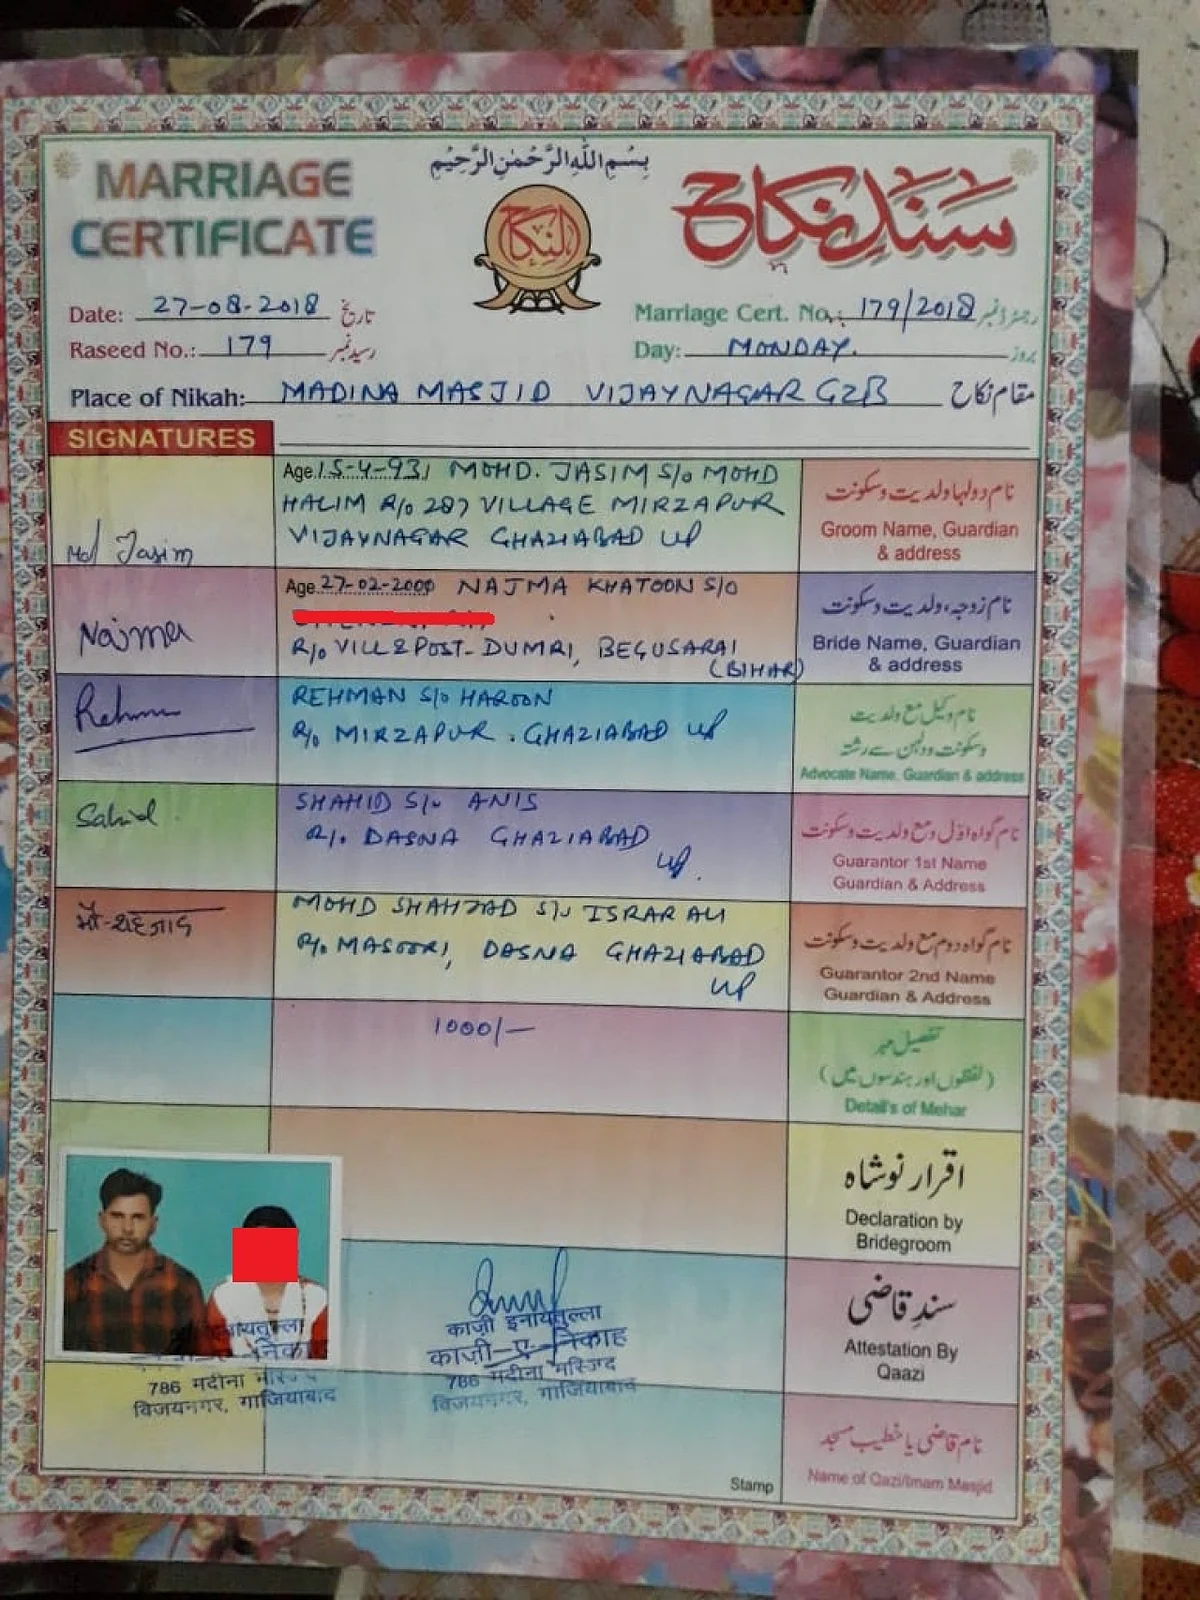 بِسْمِ اللهِ الرَّحْمٰنِ الرَّحِيْمِ
MARRIAGE
CERTIFICATE
النكاح
سَندِ نکاح
Date: 27-08-2018 تاریخ
Marriage Cert. No.: 179/2018 رجسٹرار نمبر
Raseed No.: 179 رسید نمبر
Day: MONDAY. بروز
Place of Nikah: MADINA MASJID VIJAYNAGAR GZB مقام نکاح
SIGNATURES
Age 15-4-93 MOHD. JASIM S/o MOHD
HALIM R/o 287 VILLAGE MIRZAPUR
VIJAYNAGAR GHAZIABAD UP
Md Jasim
نام دولہا ولدیت و سکونت
Groom Name, Guardian
& address
Age 27-02-2000 NAJMA KHATOON S/O
R/o VILL & POST- DUMRI, BEGUSARAI
(BIHAR)
Najma
نام زوجہ، ولدیت و سکونت
Bride Name, Guardian
& address
Rehman
REHMAN S/o HAROON
R/o MIRZAPUR. GHAZIABAD UP
نام وکیل مع ولدیت
وسکونت و دولہن سے رشتہ
Advocate Name, Guardian & address
Sahid
SHAHID S/o ANIS
R/o DASNA GHAZIABAD
UP.
نام گواہ اوّل و مع ولدیت و سکونت
Guarantor 1st Name
Guardian & Address
मौ-शहजाद
MOHD SHAHZAD S/o ISRAR ALI
R/o MASOORI, DASNA GHAZIABAD
UP
نام گواہ دوم مع ولدیت و سکونت
Guarantor 2nd Name
Guardian & Address
1000/-
تفصیل مہر
(لفظوں اور ہندسوں میں)
Detail's of Mehar
اقرار نوشاہ
Declaration by
Bridegroom
سندِ قاضی
Attestation By
Qaazi
काज़ी इनायतुल्ला
काज़ी-ए-निकाह
786 मदीना मस्जिद
विजयनगर, गाजियाबाद
786 मदीना
विजयनगर, गाजियाबाद
نام قاضی یا خطیب مسجد
Name of Qazi/Imam Masjid
Stamp